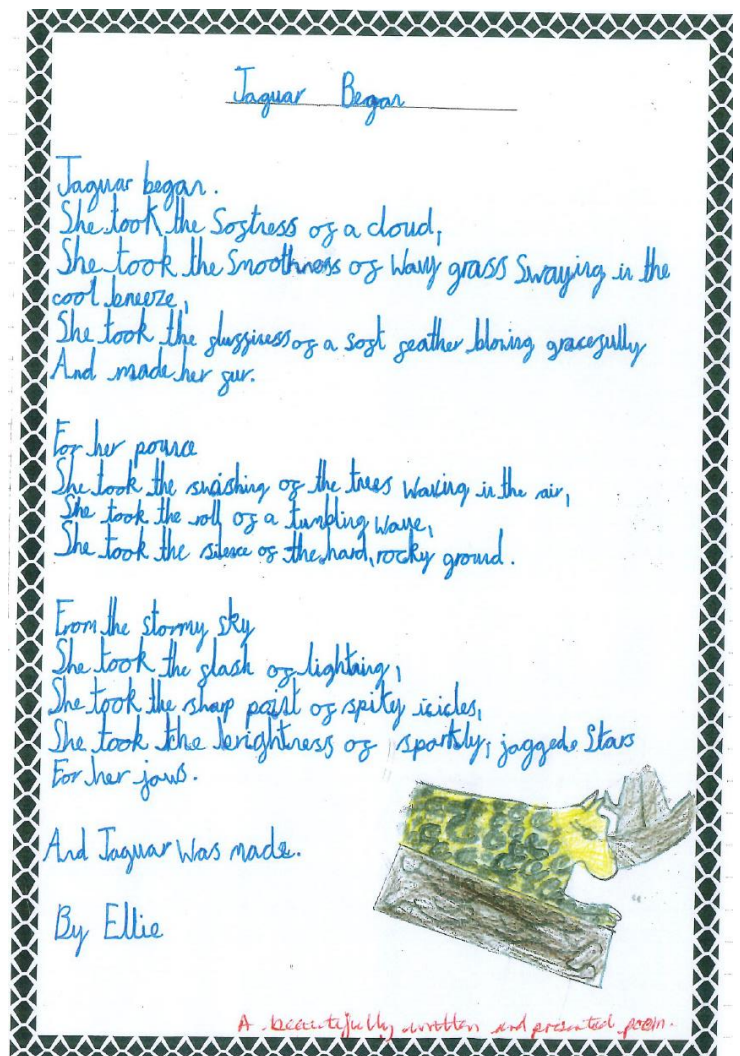 Jaguar Began
Jaguar began.
She took the Softness of a cloud,
She took the Smoothness of Wavy grass Swaying in the
cool breeze,
She took the fluffiness of a soft feather blowing gracefully
And made her fur.
For her pounce
She took the swishing of the trees waving in the air,
She took the roll of a tumbling wave,
She took the silence of the hard, rocky ground.
From the stormy sky
She took the flash of lightning,
She took the sharp point of spiky icicles,
She took the brightness of sparkly, jagged Stars
For her jaws.
And Jaguar Was made.
By Ellie
A beautifully written and presented poem.